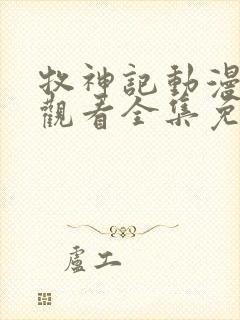 牧神記動漫
觀看全集免
盧工